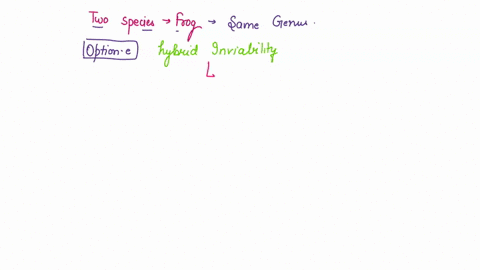 Two species → Frog → Same Genus.
Option-e hybrid Inviability